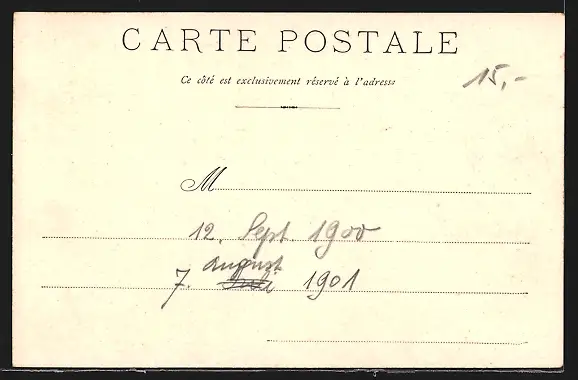 CARTE POSTALE
Ce côté est exclusivement réservé à l'adresse
15,-
M
12. Sept 1900
August
7. Juli 1901